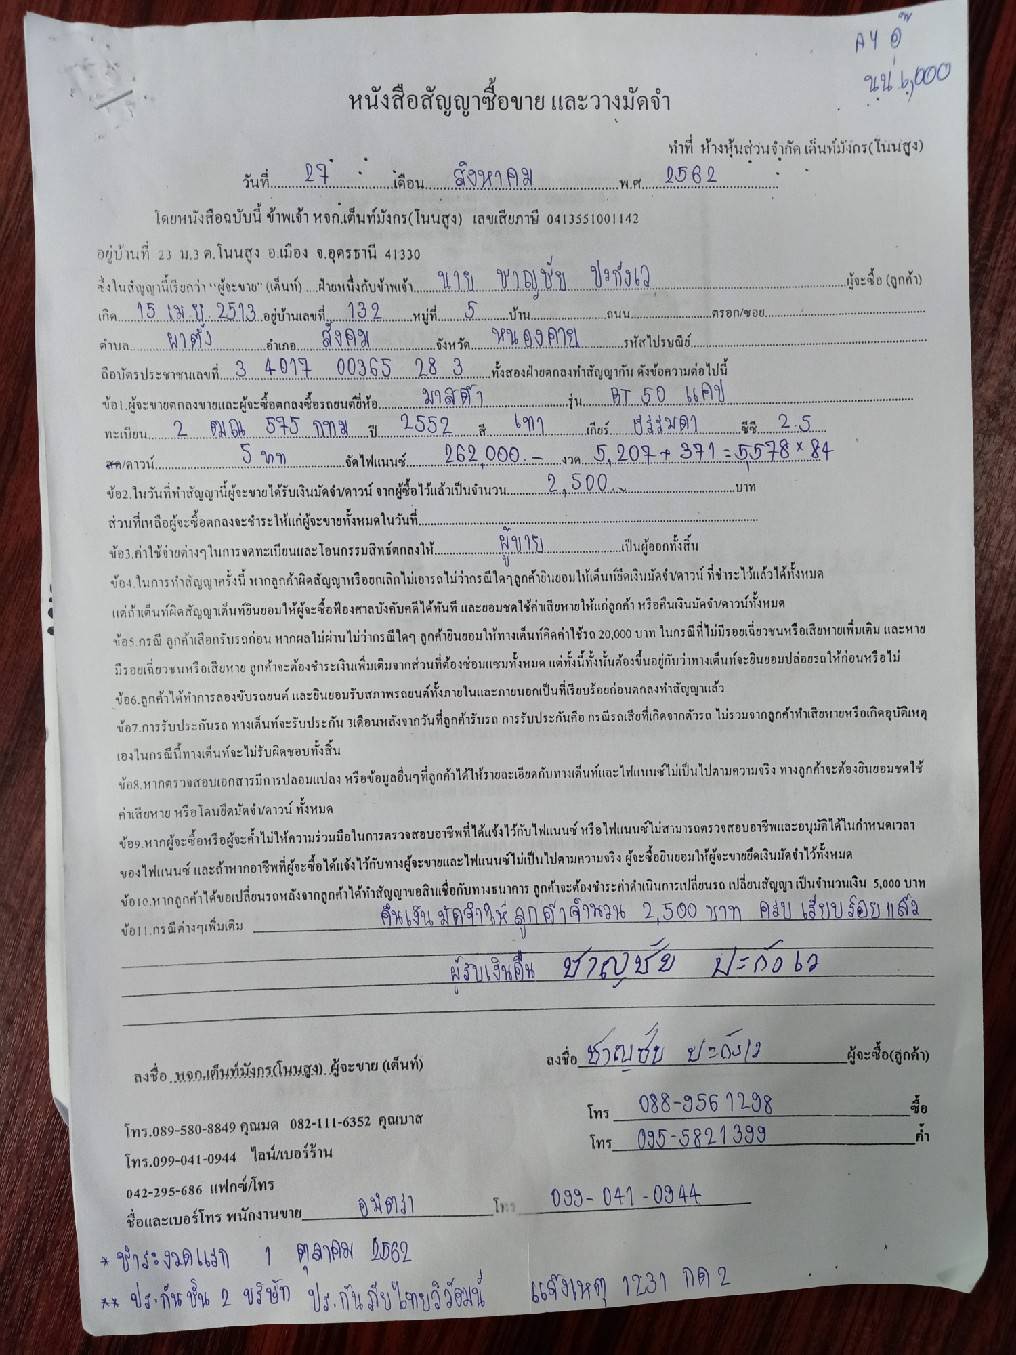 AY อุ๊
นน 6,000
หนังสือสัญญาซื้อขาย และวางมัดจำ
ทำที่ ห้างหุ้นส่วนจำกัด เต็นท์มังกร(โนนสูง)
วันที่ 27 เดือน สิงหาคม พ.ศ. 2562
โดยหนังสือฉบับนี้ ข้าพเจ้า หจก.เต็นท์มังกร(โนนสูง) เลขเสียภาษี 0413551001142
อยู่บ้านที่ 23 ม.3 ต.โนนสูง อ.เมือง จ.อุดรธานี 41330
ซึ่งในสัญญานี้เรียกว่า "ผู้จะขาย" (เต็นท์) ฝ่ายหนึ่งกับข้าพเจ้า นาย ชาญชัย ปะกังเว ผู้จะซื้อ (ลูกค้า)
เกิด 15 เม.ย. 2513 อยู่บ้านเลขที่ 132 หมู่ที่ 5 บ้าน ถนน ตรอก/ซอย
ตำบล ผาตั้ง อำเภอ สังคม จังหวัด หนองคาย รหัสไปรษณีย์
ถือบัตรประชาชนเลขที่ 3 4017 00365 28 3 ทั้งสองฝ่ายตกลงทำสัญญากัน ดังข้อความต่อไปนี้
ข้อ1.ผู้จะขายตกลงขายและผู้จะซื้อตกลงซื้อรถยนต์ยี่ห้อ มาสด้า รุ่น BT 50 แคป
ทะเบียน 2 ฒณ 575 กทม ปี 2552 สี เทา เกียร์ ธรรมดา ซีซี 2.5
สด/ดาวน์ 5 บาท จัดไฟแนนซ์ 262,000.- งวด 5,207 + 371 = 5,578 × 84
ข้อ2.ในวันที่ทำสัญญานี้ผู้จะขายได้รับเงินมัดจำ/ดาวน์ จากผู้ซื้อไว้แล้วเป็นจำนวน 2,500.- บาท
ส่วนที่เหลือผู้จะซื้อตกลงจะชำระให้แก่ผู้จะขายทั้งหมดในวันที่
ข้อ3.ค่าใช้จ่ายต่างๆในการจดทะเบียนและโอนกรรมสิทธิ์ตกลงให้ ผู้ขาย เป็นผู้ออกทั้งสิ้น
ข้อ4.ในการทำสัญญาครั้งนี้ หากลูกค้าผิดสัญญาหรือยกเลิกไม่เอารถไม่ว่ากรณีใดๆลูกค้ายินยอมให้เต็นท์ยึดเงินมัดจำ/ดาวน์ ที่ชำระไว้แล้วได้ทั้งหมด
แต่ถ้าเต็นท์ผิดสัญญาเต็นท์ยินยอมให้ผู้จะซื้อฟ้องศาลบังคับคดีได้ทันที และยอมชดใช้ค่าเสียหายให้แก่ลูกค้า หรือคืนเงินมัดจำ/ดาวน์ทั้งหมด
ข้อ5.กรณี ลูกค้าเลือกรับรถก่อน หากผลไม่ผ่านไม่ว่ากรณีใดๆ ลูกค้ายินยอมให้ทางเต็นท์คิดค่าใช้รถ 20,000 บาท ในกรณีที่ไม่มีรอยเฉี่ยวชนหรือเสียหายเพิ่มเติม และหาย
มีรอยเฉี่ยวชนหรือเสียหาย ลูกค้าจะต้องชำระเงินเพิ่มเติมจากส่วนที่ต้องซ่อมแซมทั้งหมด แต่ทั้งนี้ทั้งนั้นต้องขึ้นอยู่กับว่าทางเต็นท์จะยินยอมปล่อยรถให้ก่อนหรือไม่
ข้อ6.ลูกค้าได้ทำการลองขับรถยนต์ และยินยอมรับสภาพรถยนต์ทั้งภายในและภายนอกเป็นที่เรียบร้อยก่อนตกลงทำสัญญาแล้ว
ข้อ7.การรับประกันรถ ทางเต็นท์จะรับประกัน 3เดือนหลังจากวันที่ลูกค้ารับรถ การรับประกันคือ กรณีรถเสียที่เกิดจากตัวรถ ไม่รวมจากลูกค้าทำเสียหายหรือเกิดอุบัติเหตุ
เองในกรณีนี้ทางเต็นท์จะไม่รับผิดชอบทั้งสิ้น
ข้อ8.หากตรวจสอบเอกสารมีการปลอมแปลง หรือข้อมูลอื่นๆที่ลูกค้าได้ให้รายละเอียดกับทางเต็นท์และไฟแนนซ์ไม่เป็นไปตามความจริง ทางลูกค้าจะต้องยินยอมชดใช้
ค่าเสียหาย หรือโดนยึดมัดจำ/ดาวน์ ทั้งหมด
ข้อ9.หากผู้จะซื้อหรือผู้จะค้ำไม่ให้ความร่วมมือในการตรวจสอบอาชีพที่ได้แจ้งไว้กับไฟแนนซ์ หรือไฟแนนซ์ไม่สามารถตรวจสอบอาชีพและอนุมัติได้ในกำหนดเวลา
ของไฟแนนซ์ และถ้าหากอาชีพที่ผู้จะซื้อได้แจ้งไว้กับทางผู้จะขายและไฟแนนซ์ไม่เป็นไปตามความจริง ผู้จะซื้อยินยอมให้ผู้จะขายยึดเงินมัดจำไว้ทั้งหมด
ข้อ10.หากลูกค้าได้ขอเปลี่ยนรถหลังจากลูกค้าได้ทำสัญญาขอสินเชื่อกับทางธนาคาร ลูกค้าจะต้องชำระค่าดำเนินการเปลี่ยนรถ เปลี่ยนสัญญา เป็นจำนวนเงิน 5,000 บาท
ข้อ11.กรณีต่างๆเพิ่มเติม คืนเงินมัดจำให้ลูกค้าจำนวน 2,500 บาท ครบ เรียบร้อยแล้ว
ผู้รับเงินคืน ชาญชัย ปะกังเว
ลงชื่อ หจก.เต็นท์มังกร(โนนสูง) ผู้จะขาย (เต็นท์)
ลงชื่อ ชาญชัย ปะกังเว ผู้จะซื้อ(ลูกค้า)
โทร 088-9561298 ซื้อ
โทร.089-580-8849 คุณมด 082-111-6352 คุณบาส
โทร 095-5821399 ค้ำ
โทร.099-041-0944 ไลน์/เบอร์ร้าน
042-295-686 แฟกซ์/โทร
ชื่อและเบอร์โทร พนักงานขาย โทร 099-041-0944
* ชำระงวดแรก 1 ตุลาคม 2562
** ประกันชั้น 2 บริษัท ประกันภัยไทยวิวัฒน์ แจ้งเหตุ 1231 กด 2